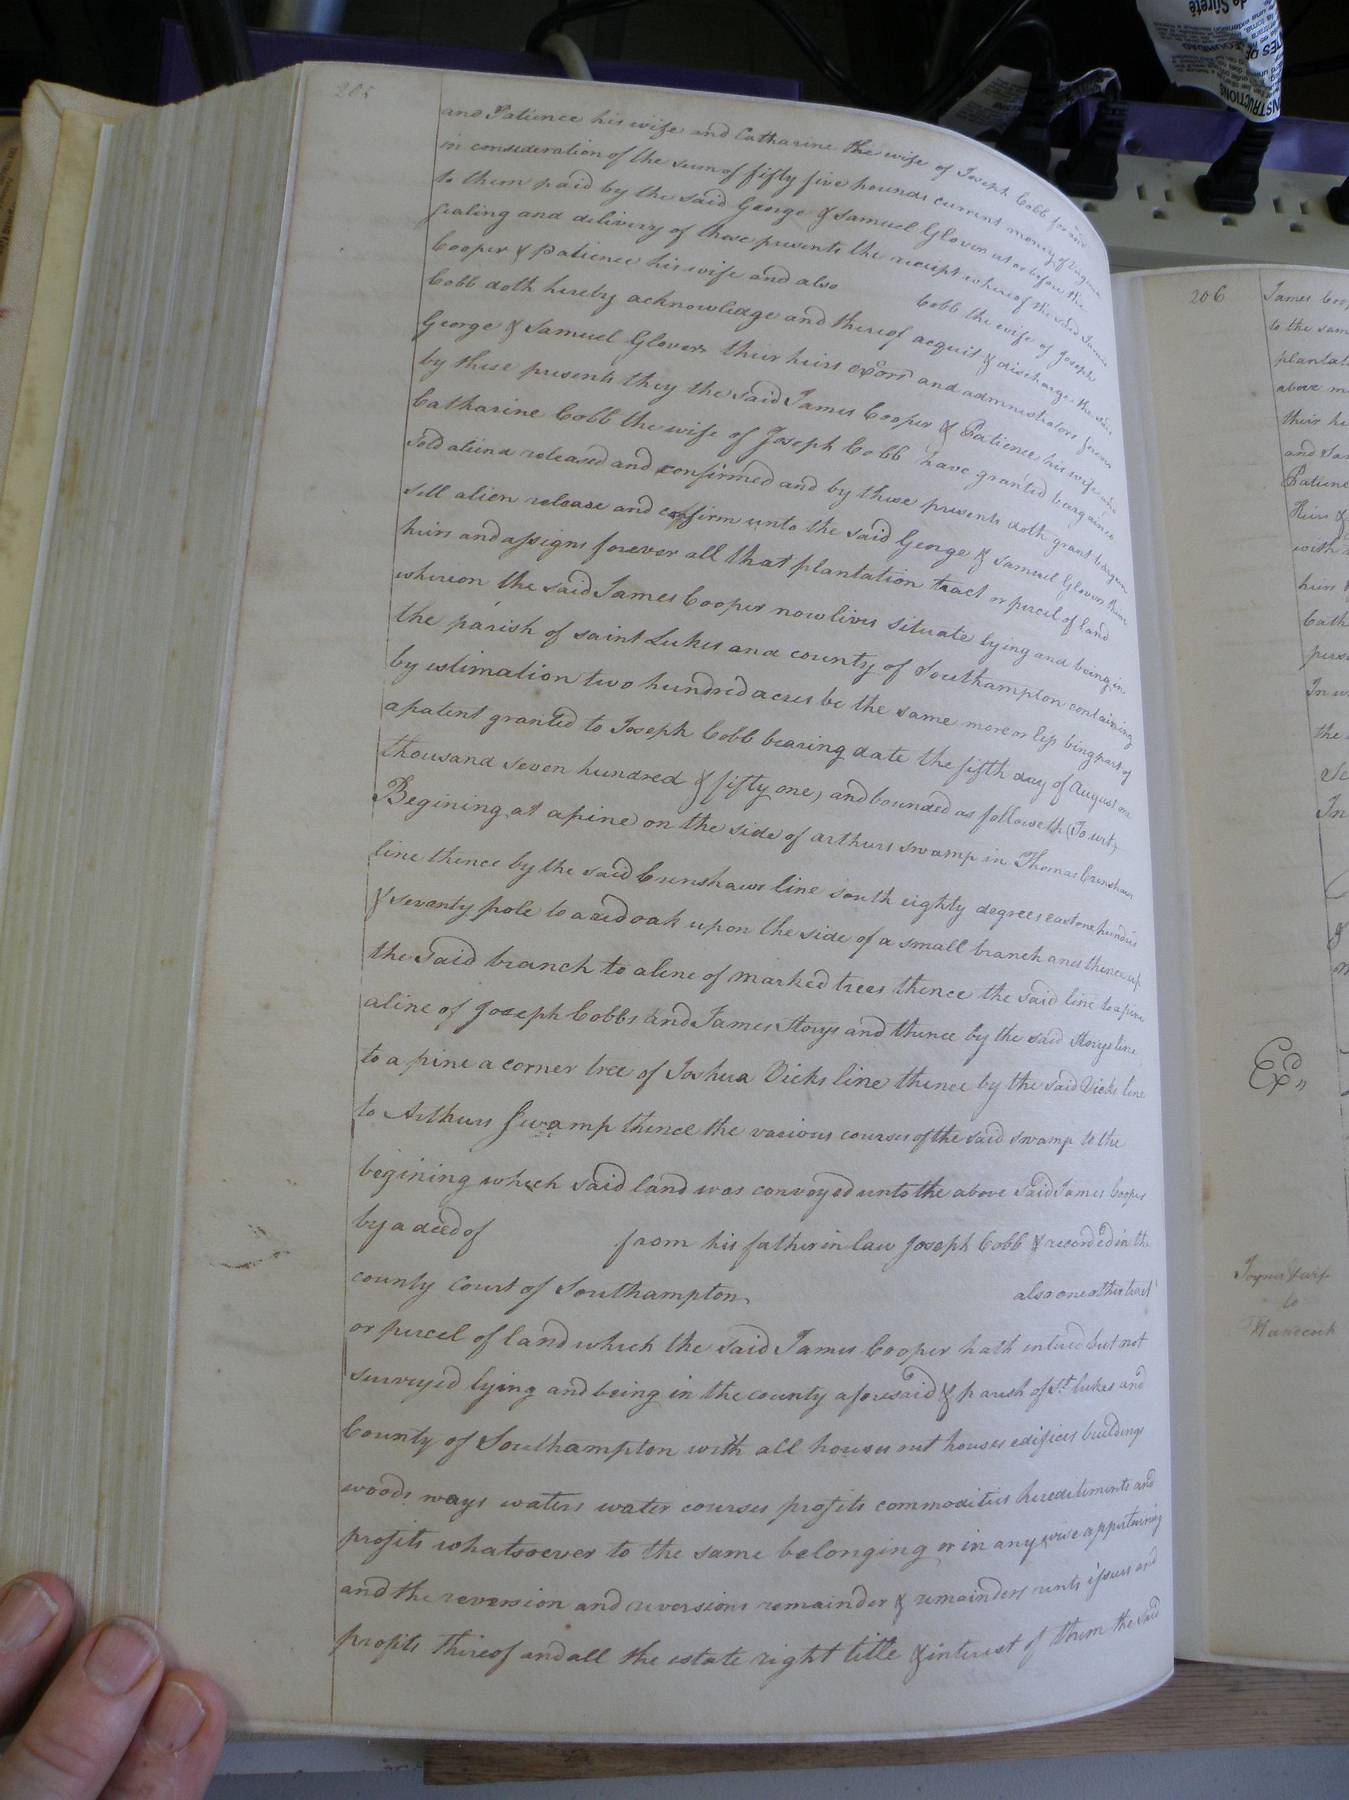 205
and Patience his wife and Catharine the wife of Joseph Cobb for and
in consideration of the sum of fifty five pounds current money of Virginia
to them paid by the said George & Samuel Glover at or before the
sealing and delivery of these presents the receipt whereof the said James
Cooper & Patience his wife and also Cobb the wife of Joseph
Cobb doth hereby acknowledge and thereof acquit & discharge the said
George & Samuel Glovers their heirs exors and administrators forever
by these presents they the said James Cooper & Patience his wife and
Catharine Cobb the wife of Joseph Cobb have granted bargained
sold aliend released and confirmed and by these presents doth grant bargain
sell alien release and confirm unto the said George & Samuel Glovers their
heirs and assigns forever all that plantation tract or percel of land
whereon the said James Cooper now lives situate lying and being in
the parish of saint Lukes and county of Southampton containing
by estimation two hundred acres be the same more or less being part of
a patent granted to Joseph Cobb bearing date the fifth day of August one
thousand seven hundred & fifty one, and bounded as followeth (To wit,
Begining at a pine on the side of arthurs swamp in Thomas Crenshaws
line thence by the said Crenshaws line south eighty degrees east one hundred
& seventy pole to a red oak upon the side of a small branch and thence up
the said branch to a line of marked trees thence the said line to a pine
a line of Joseph Cobbs and James Storys and thence by the said Storys line
to a pine a corner tree of Joshua Vicks line thence by the said Vicks line
to Arthurs Swamp thence the various courses of the said swamp to the
begining which said land was conveyed unto the above said James Cooper
by a deed of from his father in law Joseph Cobb & recorded in the
county Court of Southampton also one other tract
or percel of land which the said James Cooper hath entered but not
surveyed lying and being in the county aforesaid & parish of St. Lukes and
County of Southampton with all houses out houses edifices buildings
woods ways waters water courses profits commodities hereditiments and
profits whatsoever to the same belonging or in any wise appertaining
and the reversion and reversions remainder & remainders rents issues and
profits thereof and all the estate right title & interest of them the said
206
James Coop
to the sam
plantat
above m
their he
and Sam
Patience
Heirs &
with
heirs
Cath
perso
In w
the
Se
In
Ex,,
Joyner & wife
to
Hancock